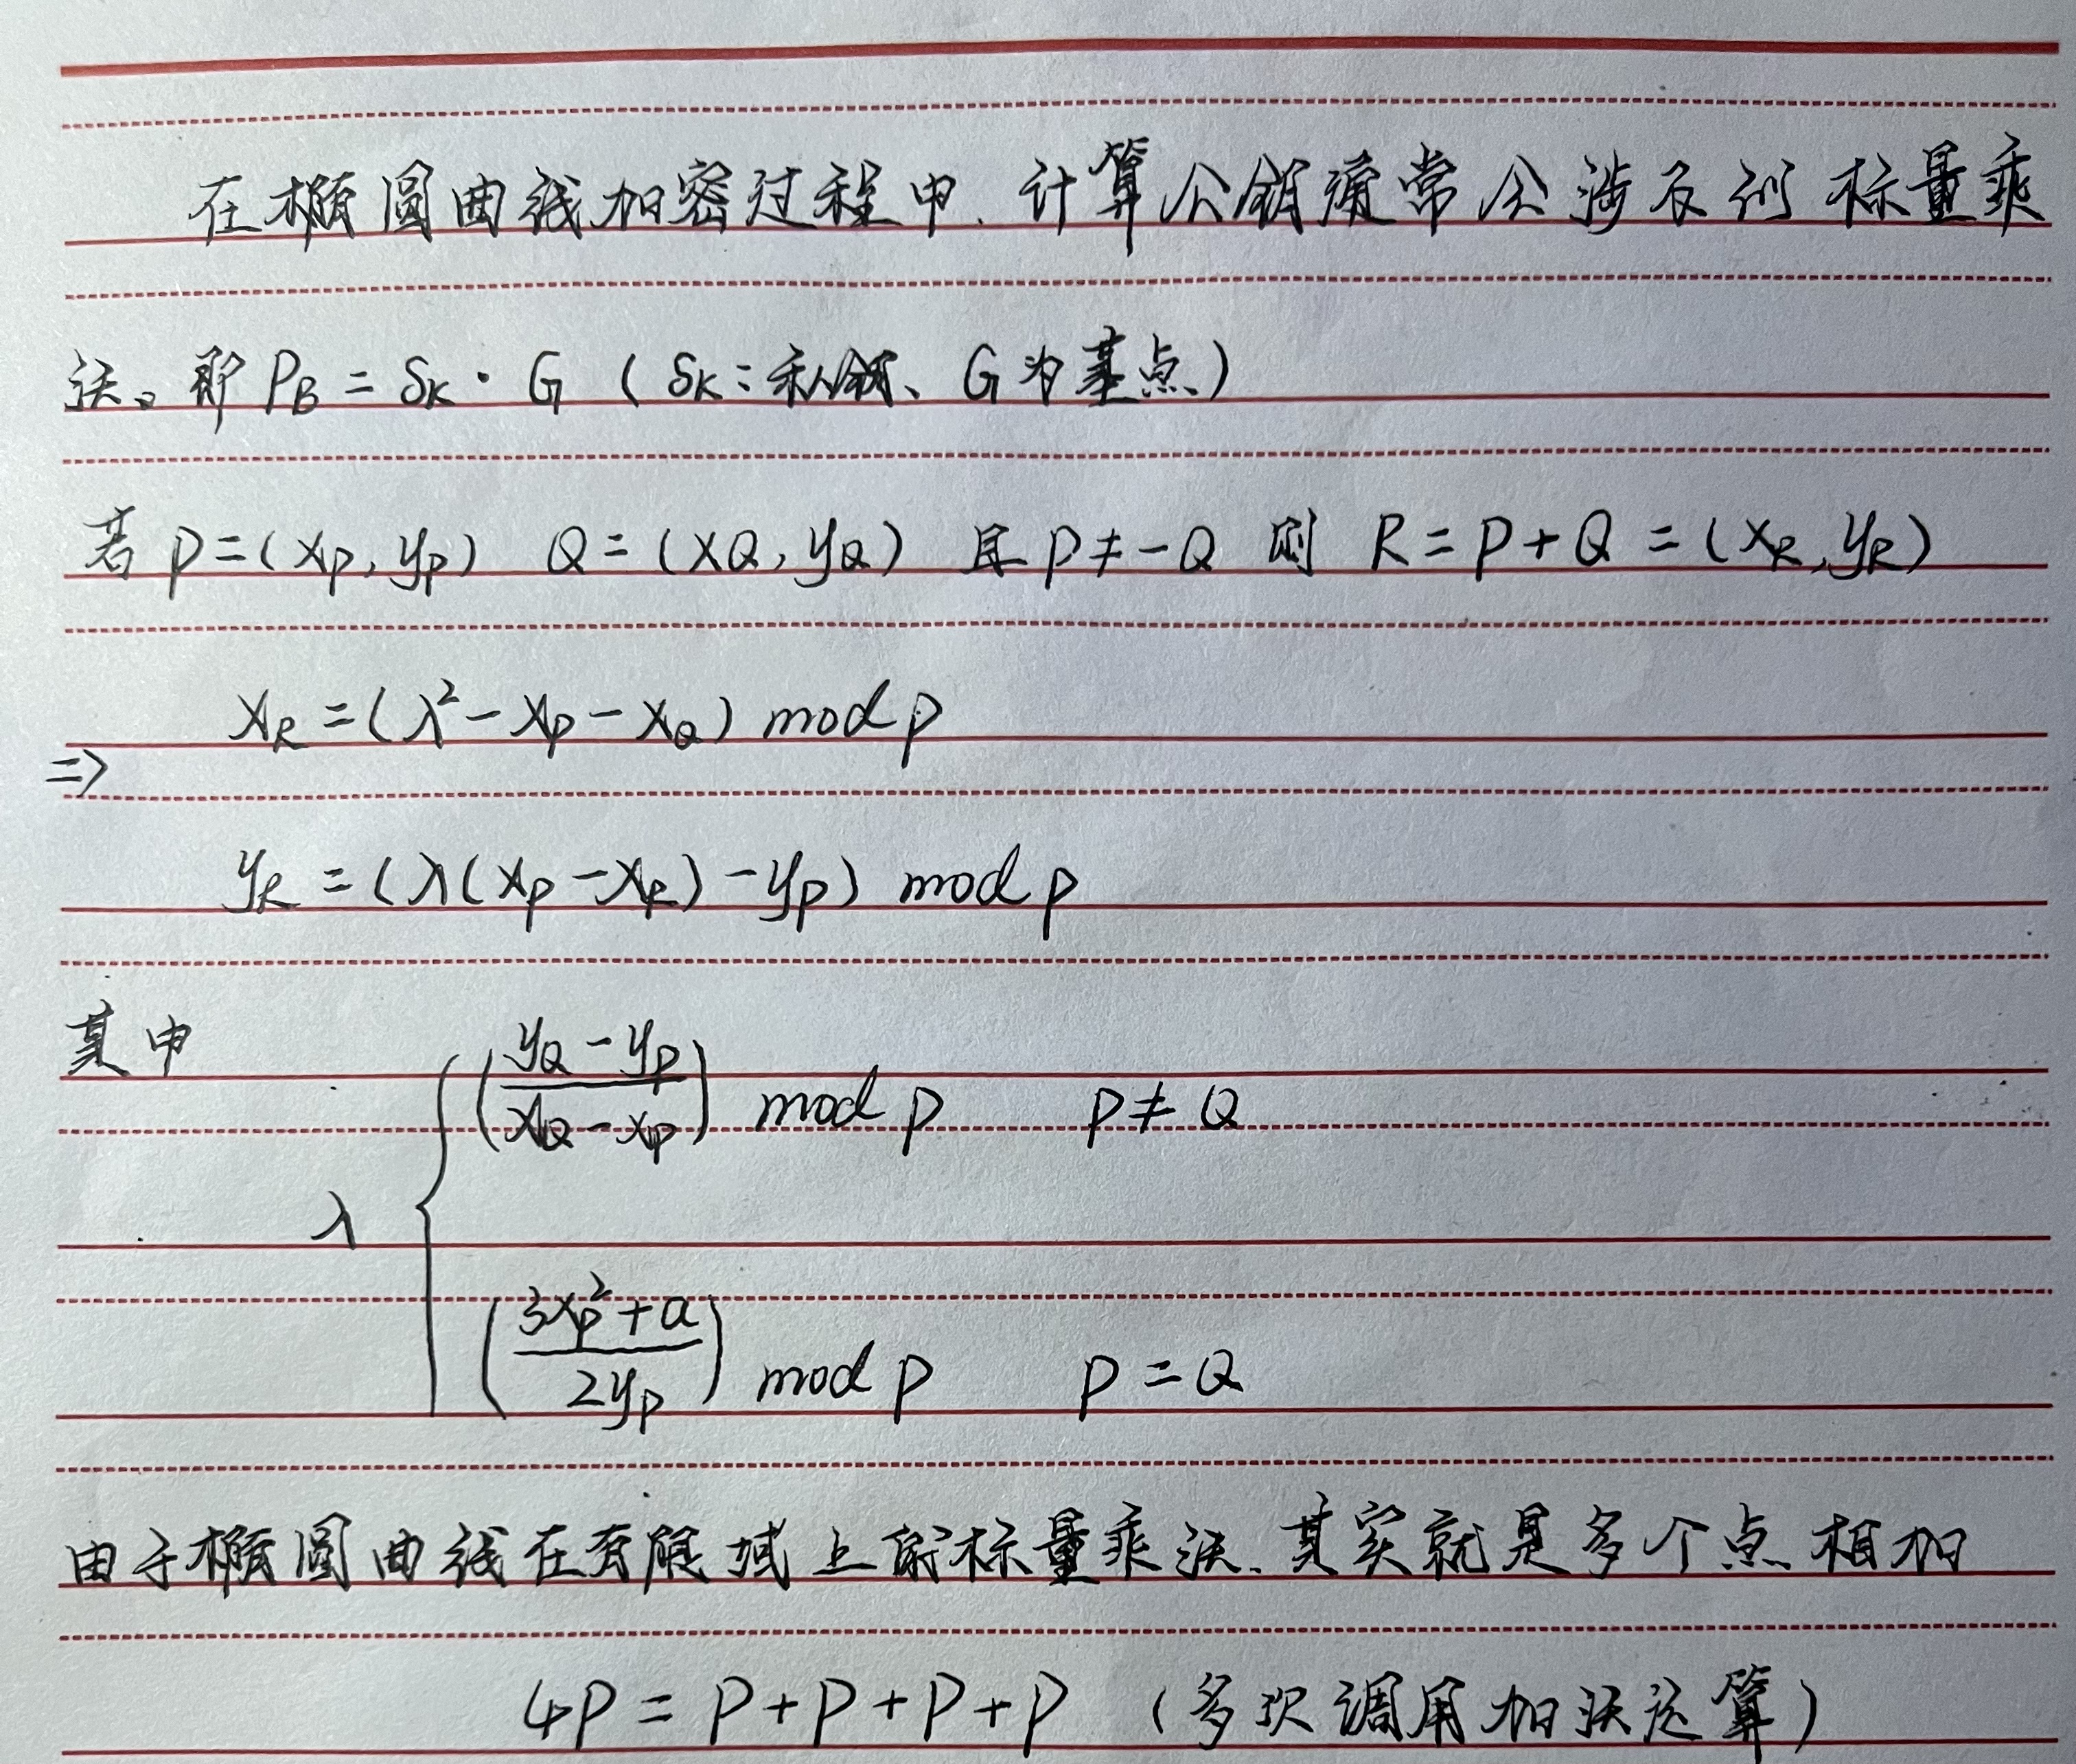 在椭圆曲线加密过程中、计算公钥通常会涉及到标量乘
法。即 P_B = S_K · G ( S_K : 私钥、G为基点 )
若 P = (x_P, y_P) Q = (x_Q, y_Q) 且 P ≠ -Q 则 R = P + Q = (x_R, y_R)
x_R = (λ² - x_P - x_Q) mod p
⇒
y_R = (λ(x_P - x_R) - y_P) mod p
其中
λ { ((y_Q - y_P)/(x_Q - x_P)) mod p P ≠ Q
((3x_P² + a)/(2y_P)) mod p P = Q
由于椭圆曲线在有限域上的标量乘法、其实就是多个点相加
4P = P + P + P + P (多次调用加法运算)